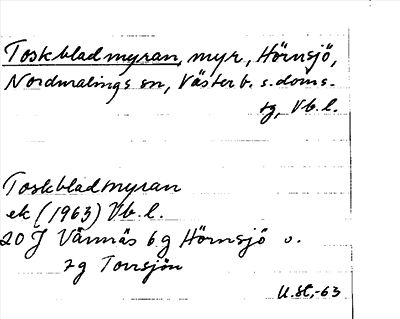 Toskbladmyran, myr, Hörnsjö,
Nordmalings sn, Västerb. s. doms.
sg, Vb. l.
Toskbladmyran
ek (1963) Vb. l.
20 J Vännäs 6 g Hörnsjö o.
7g Torrsjön
U.St,-63